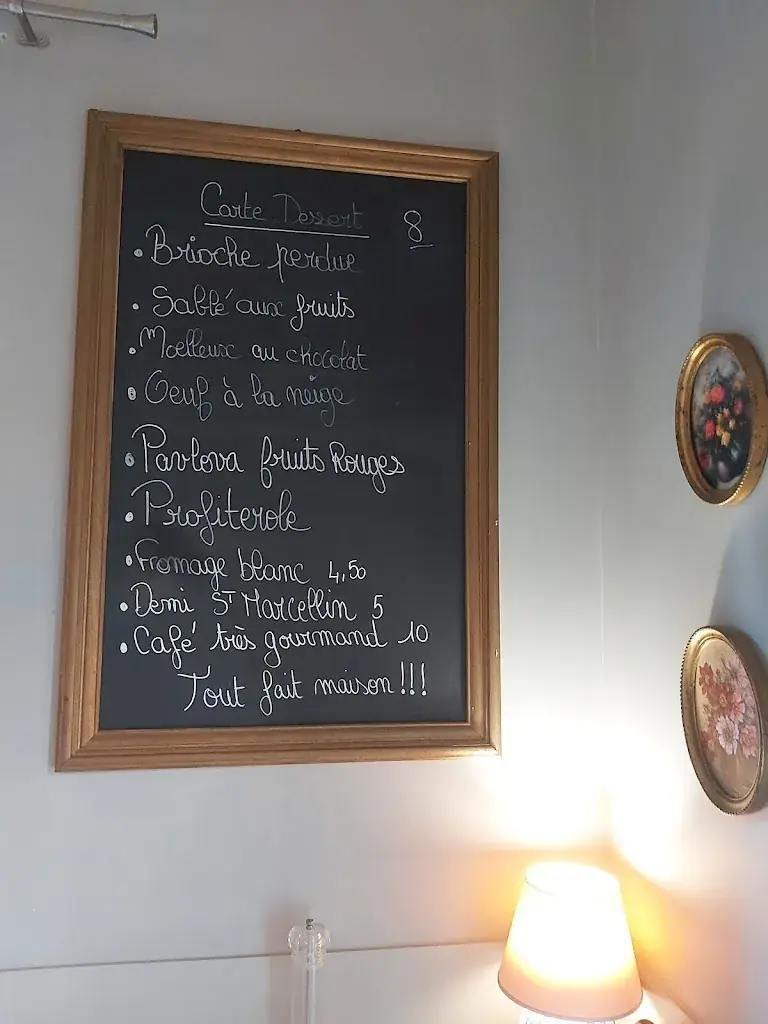 Carte Dessert 8
• Brioche perdue
• Sablé aux fruits
• Moelleux au chocolat
• Oeuf à la neige
• Pavlova fruits Rouges
• Profiterole
• Fromage blanc 4,50
• Demi St Marcellin 5
• Café très gourmand 10
Tout fait maison !!!